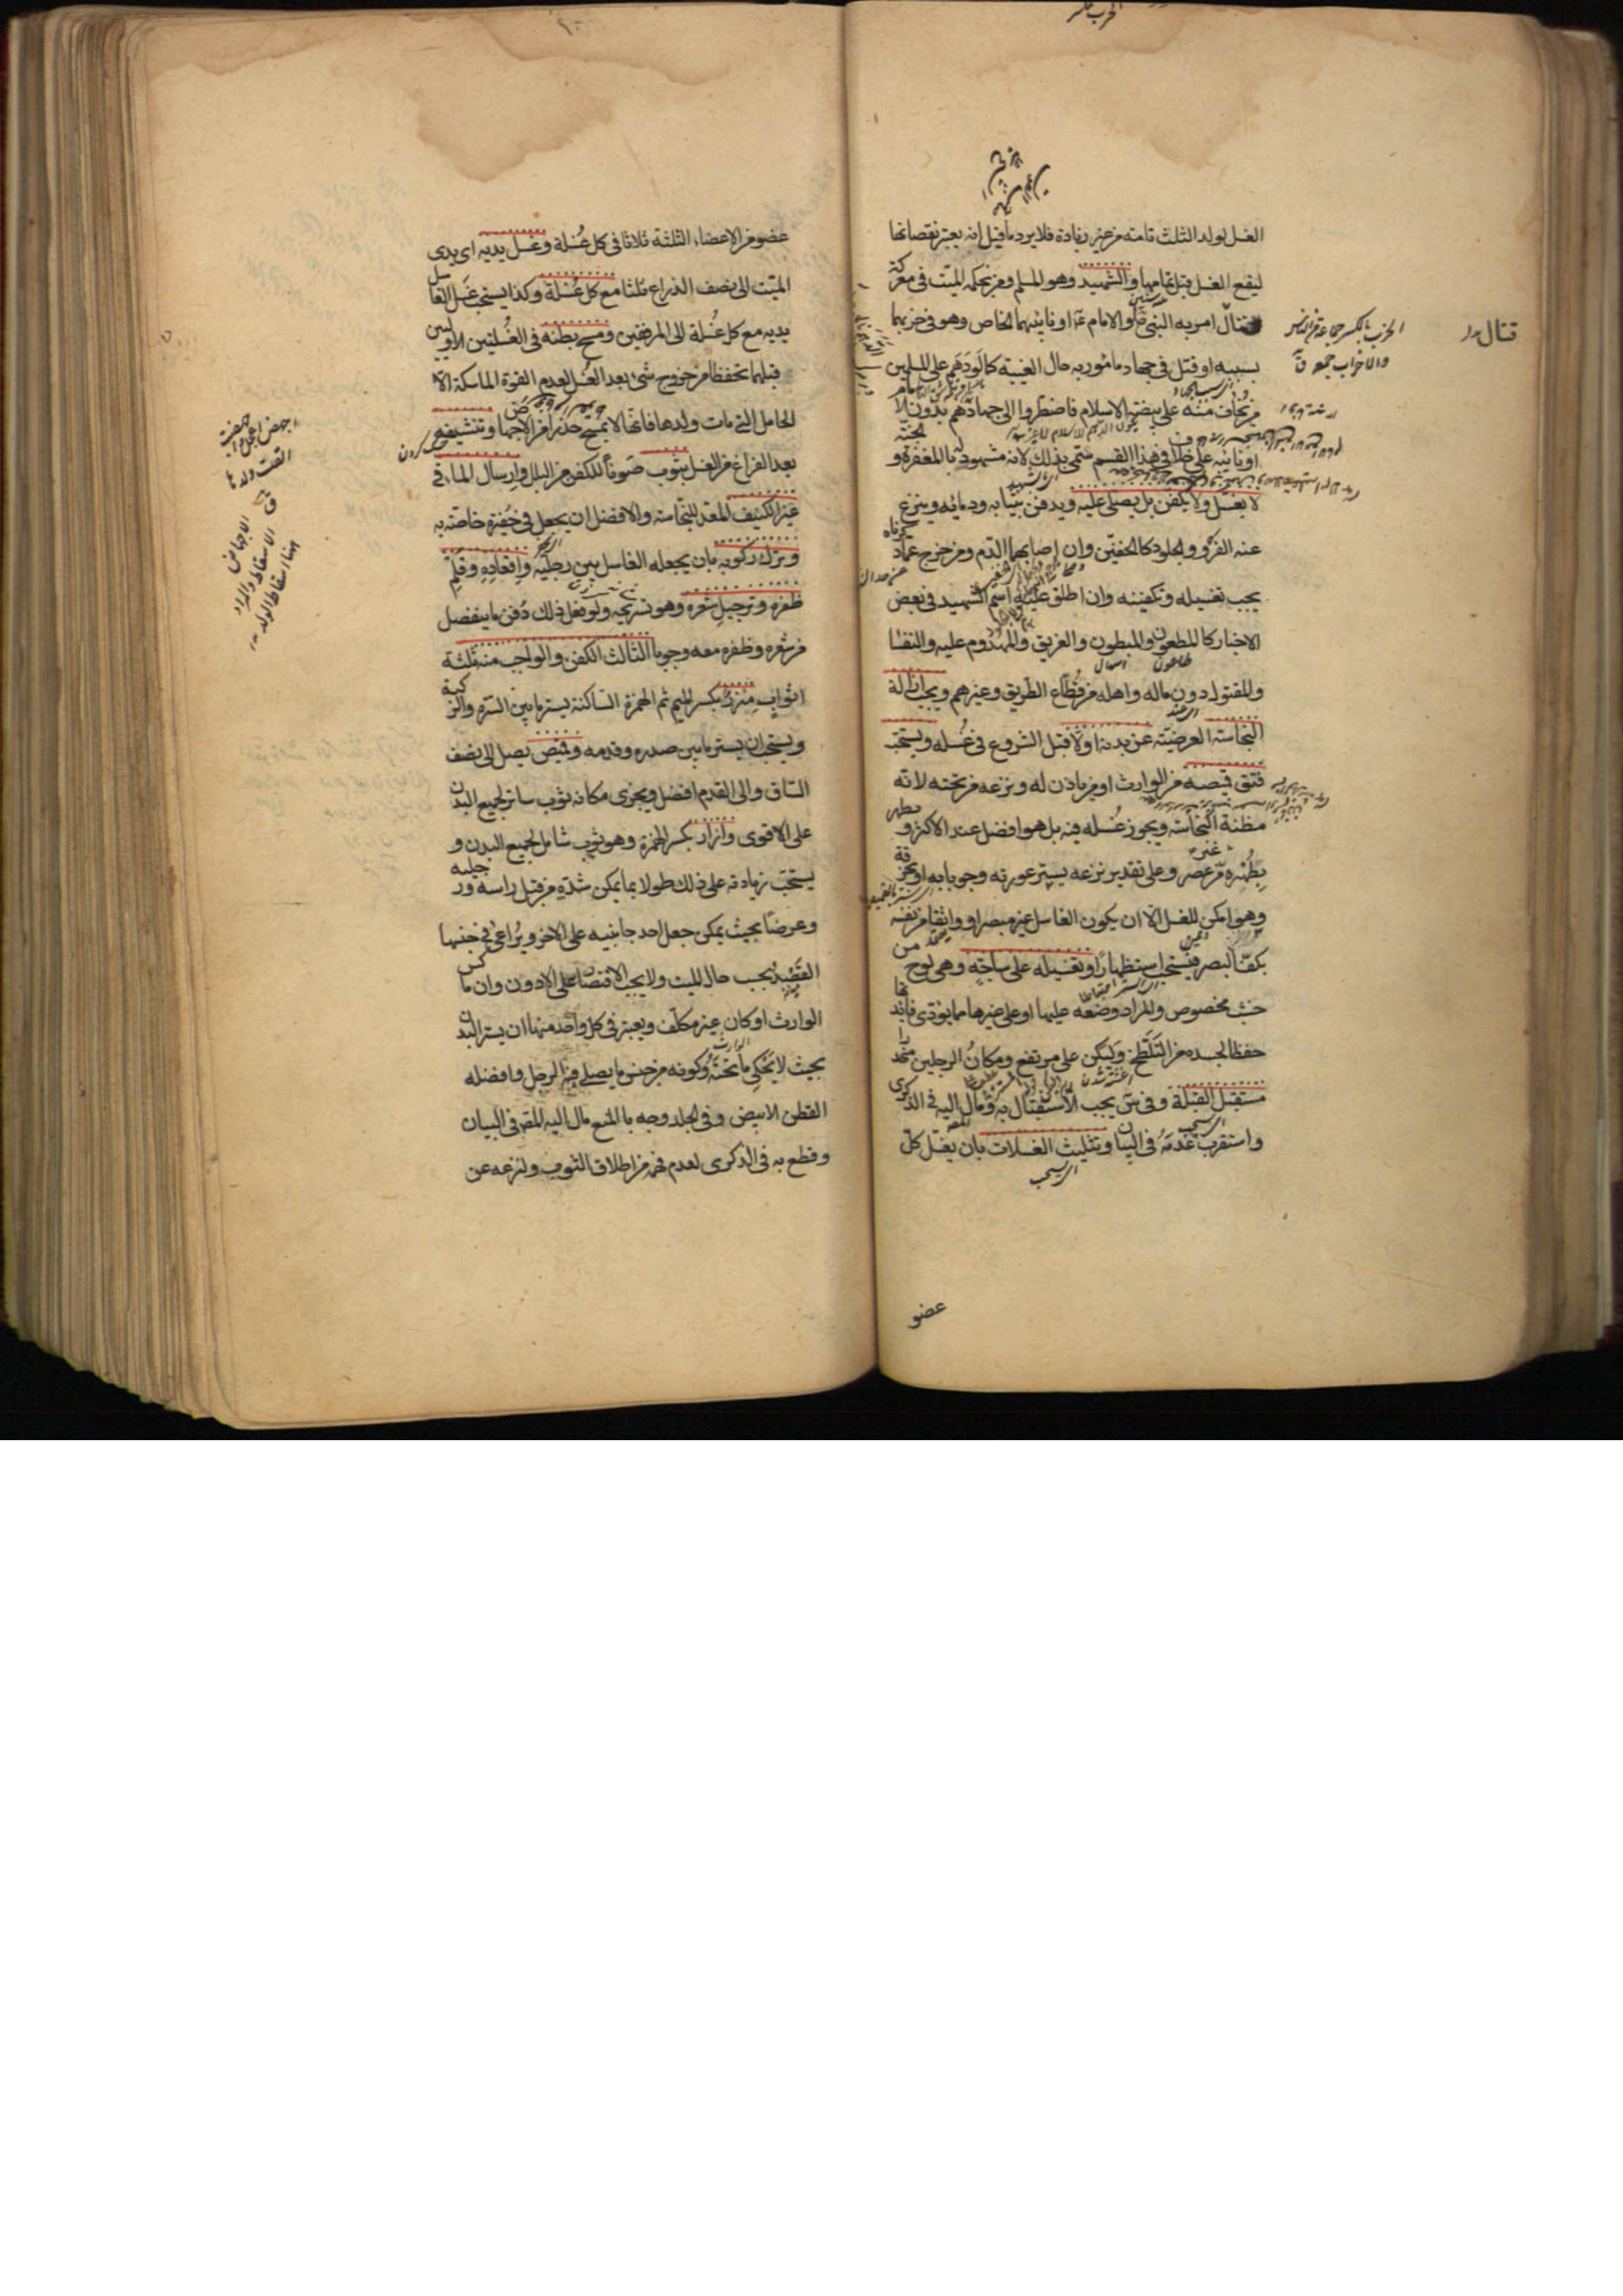 الغسل لولد الثلث تامة من غير زيادة فلا يرد ما قيل انه يعتبر نقصانها
ليقع الغسل قبل تمامها والشهيد وهو المسلم ومن بحكمه الميت في معركة
قتال امر به النبي ص او الامام ع او نايبهما الخاص وهو في حزبهما
بسببه او قتل في جهاد مامور به حال الغيبة كما لو دهم على المسلمين
من يخاف منه على بيضة الاسلام فاضطروا الى جهادهم بدون الامام
او نايبه على خلاف في هذا القسم سمى بذلك لانه مشهود له بالمغفرة والجنة
لا يغسل ولا يكفن بل يصلى عليه ويدفن بثيابه ودمائه وينزع
عنه الفرو والجلود كالخفين وان اصابهما الدم ومن خرج عما ذكرناه
يجب تغسيله وتكفينه وان اطلق عليه اسم الشهيد في بعض
الاخبار كالمطعون والمبطون والغريق والمهدوم عليه والنفسا
والمقتول دون ماله واهله من قطاع الطريق وغيرهم ويجب ازالة
النجاسة العرضية عن بدنه اولا قبل الشروع في غسله ويستحب
فتق قميصه من الوارث او من ياذن له ونزعه من تحته لانه
مظنة النجاسة ويجوز غسله فيه بل هو افضل عند الاكثر ويطهر
بطهره من غير عصر وعلى تقدير نزعه يستر عورته وجوبا به او بخرقة
وهو امكن للغسل الا ان يكون الغاسل غير مبصر او واثقا من نفسه
بكف البصر فيستحب استظهارا وتغسيله على ساجة وهي لوح من
خشب مخصوص والمراد وضعه عليها او على غيرها مما يؤدى فايدتها
حفظا لجسده من التلطخ وليكن على مرتفع ومكان الرجلين منحدرا
مستقبل القبلة وفي س يجب الاستقبال به ومال اليه في الذكرى
واستقرب عدمه في البيان وتثليث الغسلات بان يغسل كل
عضو
قتال
الحزب بالكسر جماعة من الناس
والاحزاب جمعه ق
عضو من الاعضاء الثلثة ثلاثا في كل غسلة وغسل يديه اى يدى
الميت الى نصف الذراع ثلثا مع كل غسلة وكذا يستحب غسل الغاسل
يديه مع كل غسلة الى المرفقين ومسح بطنه في الغسلتين الاوليين
قبلهما تحفظا من خروج شئ بعد الغسل لعدم القوة الماسكة الا
الحامل التي مات ولدها فانها لا تمسح حذرا من الاجهاض وتنشيفه
بعد الفراغ من الغسل بثوب صونا للكفن من البلل وارسال الماء في
غير الكنيف المعد للنجاسة والافضل ان يجعل في حفيرة خاصة به
وترك ركوبه بان يجعله الغاسل بين رجليه واقعاده وقلم
ظفره وترجيل شعره وهو تسريحه ولو فعل ذلك دفن ما ينفصل
من شعره وظفره معه وجوبا الثالث الكفن والواجب منه ثلثة
اثواب مئزر بكسر الميم ثم الهمزة الساكنة يستر ما بين السرة والركبة
ويستحب ان يستر ما بين صدره وقدمه وقميص يصل الى نصف
الساق والى القدم افضل ويجزى مكانه ثوب ساتر لجميع البدن
على الاقوى وازار بكسر الهمزة وهو ثوب شامل لجميع البدن و
يستحب زيادته على ذلك طولا بما يمكن شده من قبل راسه ورجليه
وعرضا بحيث يمكن جعل احد جانبيه على الاخر ويراعى في جنسها
القصد بحسب حال الميت ولا يجب الاقتصار على الادون وان ماكس
الوارث او كان غير مكلف ويعتبر في كل واحد منها ان يستر البدن
بحيث لا يحكى ما تحته وكونه من جنس ما يصلى فيه الرجل وافضله
القطن الابيض وفي الجلد وجه بالمنع مال اليه المص في البيان
وقطع به في الذكرى لعدم فهمه من اطلاق الثوب ولنزعه عن
القت ولدها
ق
الاجهاض
الاسقاط والمراد
هنا اسقاط الولد